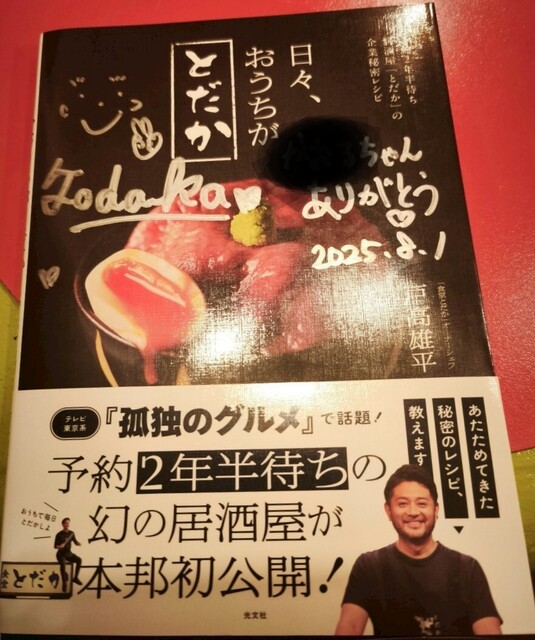 予約2年半待ち
居酒屋「とだか」の
企業秘密レシピ
日々、
おうちが
とだか
ちゃん
ありがとう
2025.8.1
Todaka
「食堂とだか」オーナーシェフ
戸高雄平
テレビ
東京系
『孤独のグルメ』で話題!
あたためてきた
秘密のレシピ、
教えます
予約2年半待ちの
幻の居酒屋が
本邦初公開!
おうちで毎日
とだかしよ
とだか
光文社